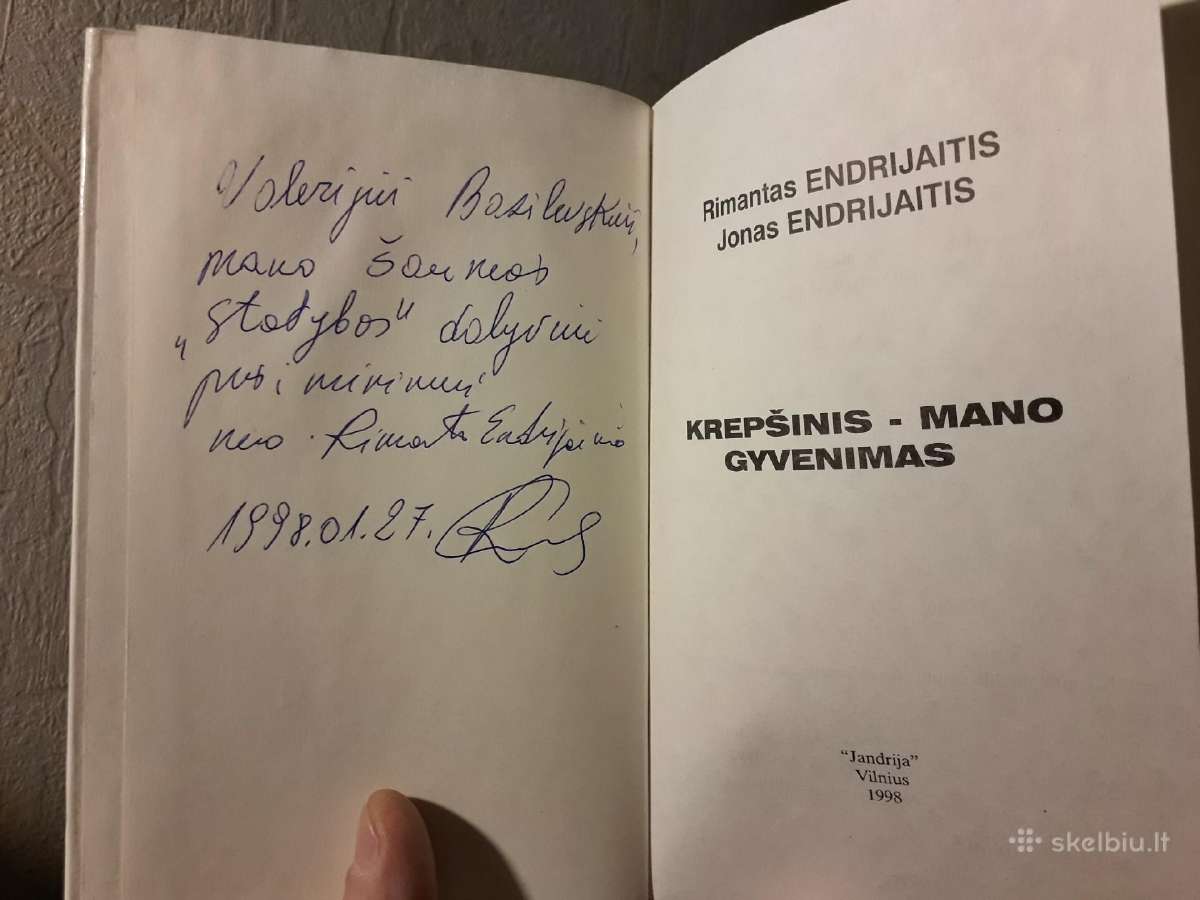 Valerijui Bazilevskiui,
mano šaunios
„Statybos“ dalyviui
prisiminimui
nuo Rimanto Endrijaičio
1998.01.27.
Rimantas ENDRIJAITIS
Jonas ENDRIJAITIS
KREPŠINIS - MANO
GYVENIMAS
“Jandrija”
Vilnius
1998
skelbiu.lt